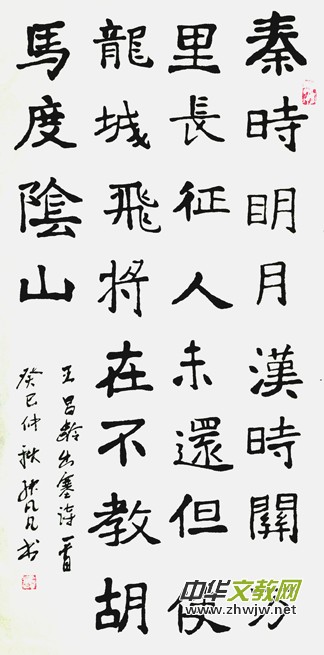 秦時明月漢時關万
里長征人未還但使
龍城飛將在不教胡
馬度陰山
王昌齡出塞诗一首
癸巳仲秋张凡凡书
中华文教网
www.zhwjw.net